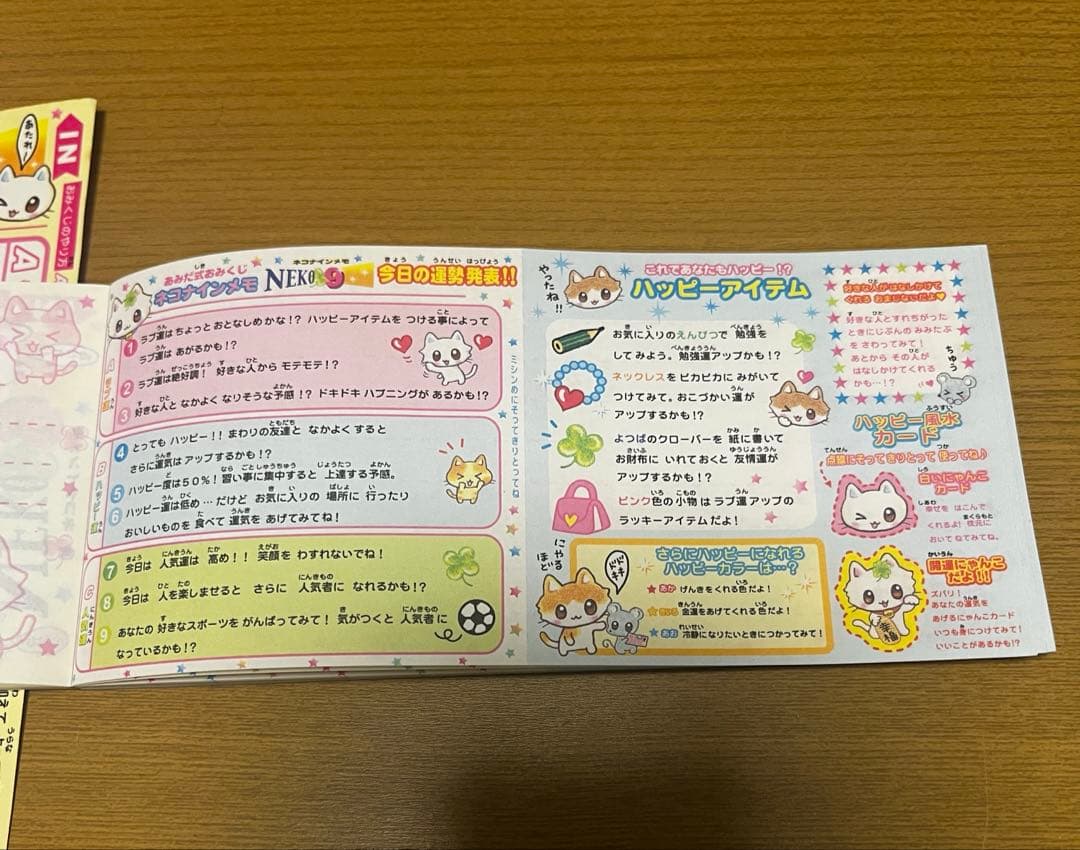 あたれー!
IN
おみくじのやり方
A
あみだ式おみくじ
ネコナインメモ
ネコナインメモ
NEKO 9
今日の運勢発表!!
A ラブ運
1 ラブ運は ちょっと おとなしめ かな!? ハッピーアイテムを つける事によって
ラブ運は あがるかも!?
2 ラブ運は 絶好調! 好きな人から モテモテ!?
3 好きな人と なかよく なりそうな 予感!? ドキドキ ハプニングが あるかも!?
B ハッピー運
4 とっても ハッピー!! まわりの友達と なかよくすると
さらに運気は アップするかも!?
5 ハッピー度は50%! 習い事に集中すると 上達する予感。
6 ハッピー運は低め…だけど お気に入りの 場所に 行ったり
おいしいものを 食べて 運気を あげてみてね!
C 人気運
7 今日は 人気運は 高め!! 笑顔を わすれないでね!
8 今日は 人を楽しませると さらに 人気者に なれるかも!?
9 あなたの 好きなスポーツを がんばってみて! 気がつくと 人気者に
なっているかも!?
ミシンめにそってきりとってね
やったね!!
これであなたもハッピー!?
ハッピーアイテム
お気に入りのえんぴつで 勉強を
してみよう。勉強運アップかも!?
ネックレスを ピカピカに みがいて
つけてみて。おこづかい運が
アップするかも!?
よつばのクローバーを 紙に書いて
お財布に いれておくと 友情運が
アップするかも!?
ピンク色の小物は ラブ運アップの
ラッキーアイテムだよ!
にゃるほど
ドキドキ
さらにハッピーになれる
ハッピーカラーは…?
★あか げんきをくれる色だよ!
★きいろ 金運をあげてくれる色だよ!
★あお 冷静になりたいときにつかってみて!
好きな人が はなしかけて
くれる おまじないだよ♥
好きな人とすれちがった
ときにじぶんの みみたぶ
を さわってみて!
あとから その人が
はなしかけてくれる
かも…!?
ちゅう
ハッピー風水
カード
点線にそって きりとって 使ってね♪
白いにゃんこ
カード
幸せを はこんで
くれるよ! 枕元に
おいて ねてみてね。
開運にゃんこ
だよ!!
幸福
ズバリ!
あなたの運気を
あげるにゃんこカード
いつも身につけてみて!
いいことがあるかも!?